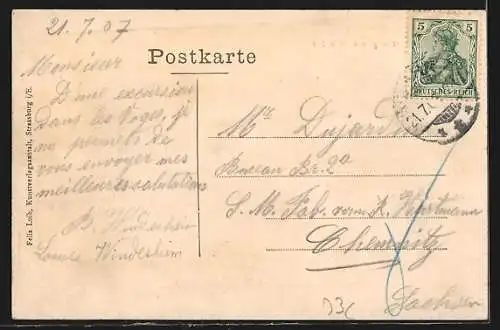 21.7.07
Postkarte
Monsieur
D'une excursion
dans les Voges, je
me permets de
vous envoyer mes
meilleures salutations
B. Windesheim
Louise Windesheim
Felix Luib, Kunstverlagsanstalt, Strassburg i/E.
5 5
DEUTSCHES REICH
21.7.
Mr. Dujardin
Bureau Br. 2a
S. M. Fab. vorm. R. Hartmann
Chemnitz
Sachsen